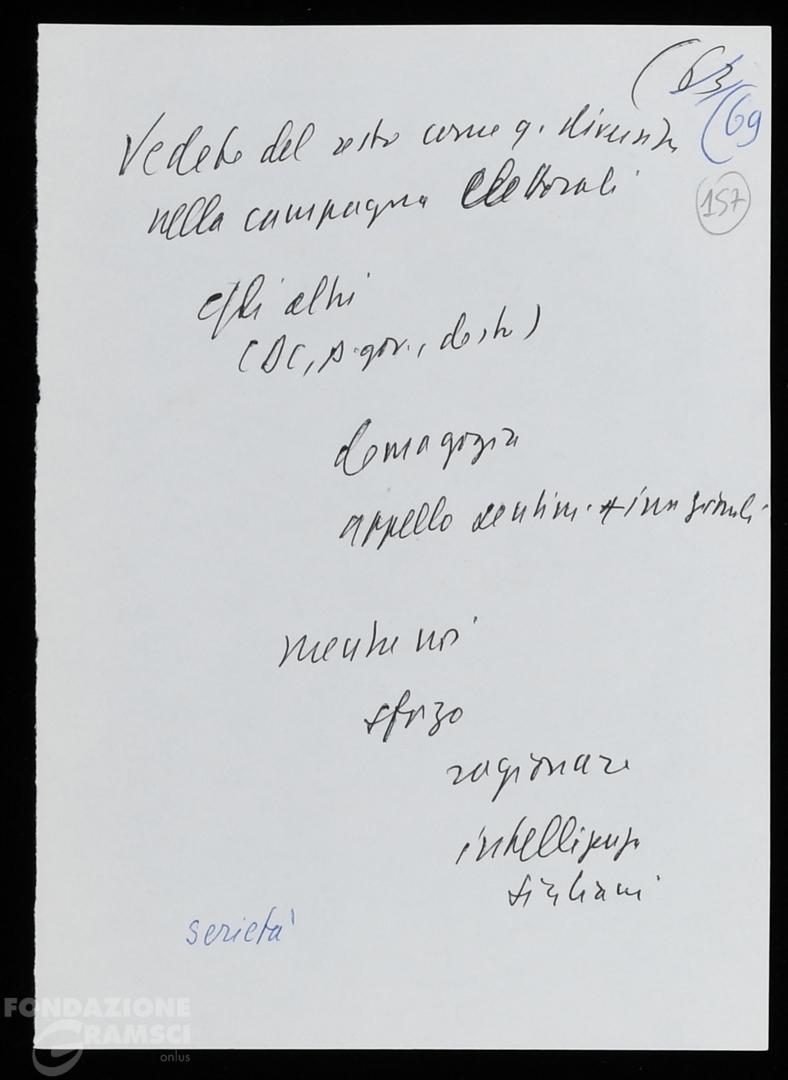 (63
(69
157
Vedete del resto come q. diversità
nella campagna elettorali
Gli altri
(DC, p. gov., destre)
demagogia
appello sentim. irrazionali
mentre noi
sforzo
ragionare
intelligenza
siciliani
serietà
FONDAZIONE
GRAMSCI
onlus